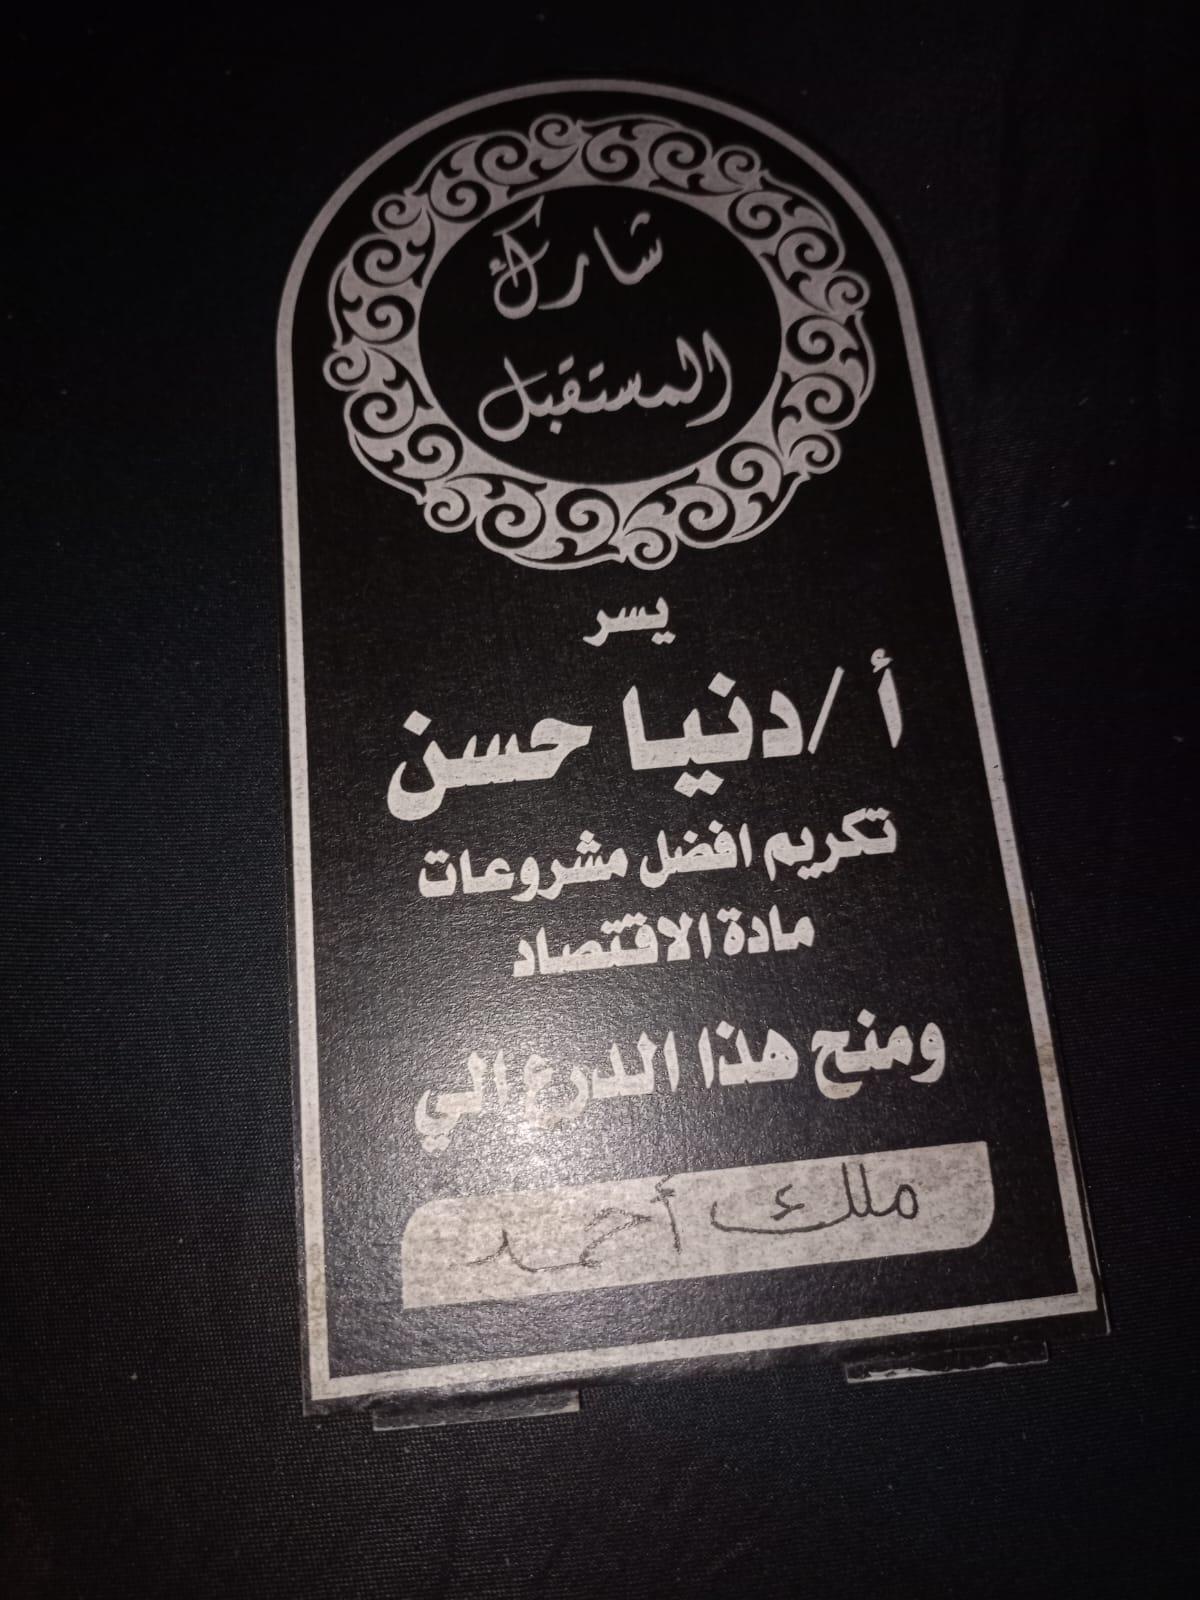 شارك
المستقبل
يسر
أ /دنيا حسن
تكريم افضل مشروعات
مادة الاقتصاد
ومنح هذا الدرع الي
ملك أحمد